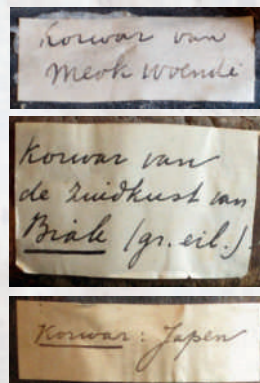 Korwar van
Meok Woendi
Korwar van
de Zuidkust van
Biak (gr. eil.).
Korwar: Japen